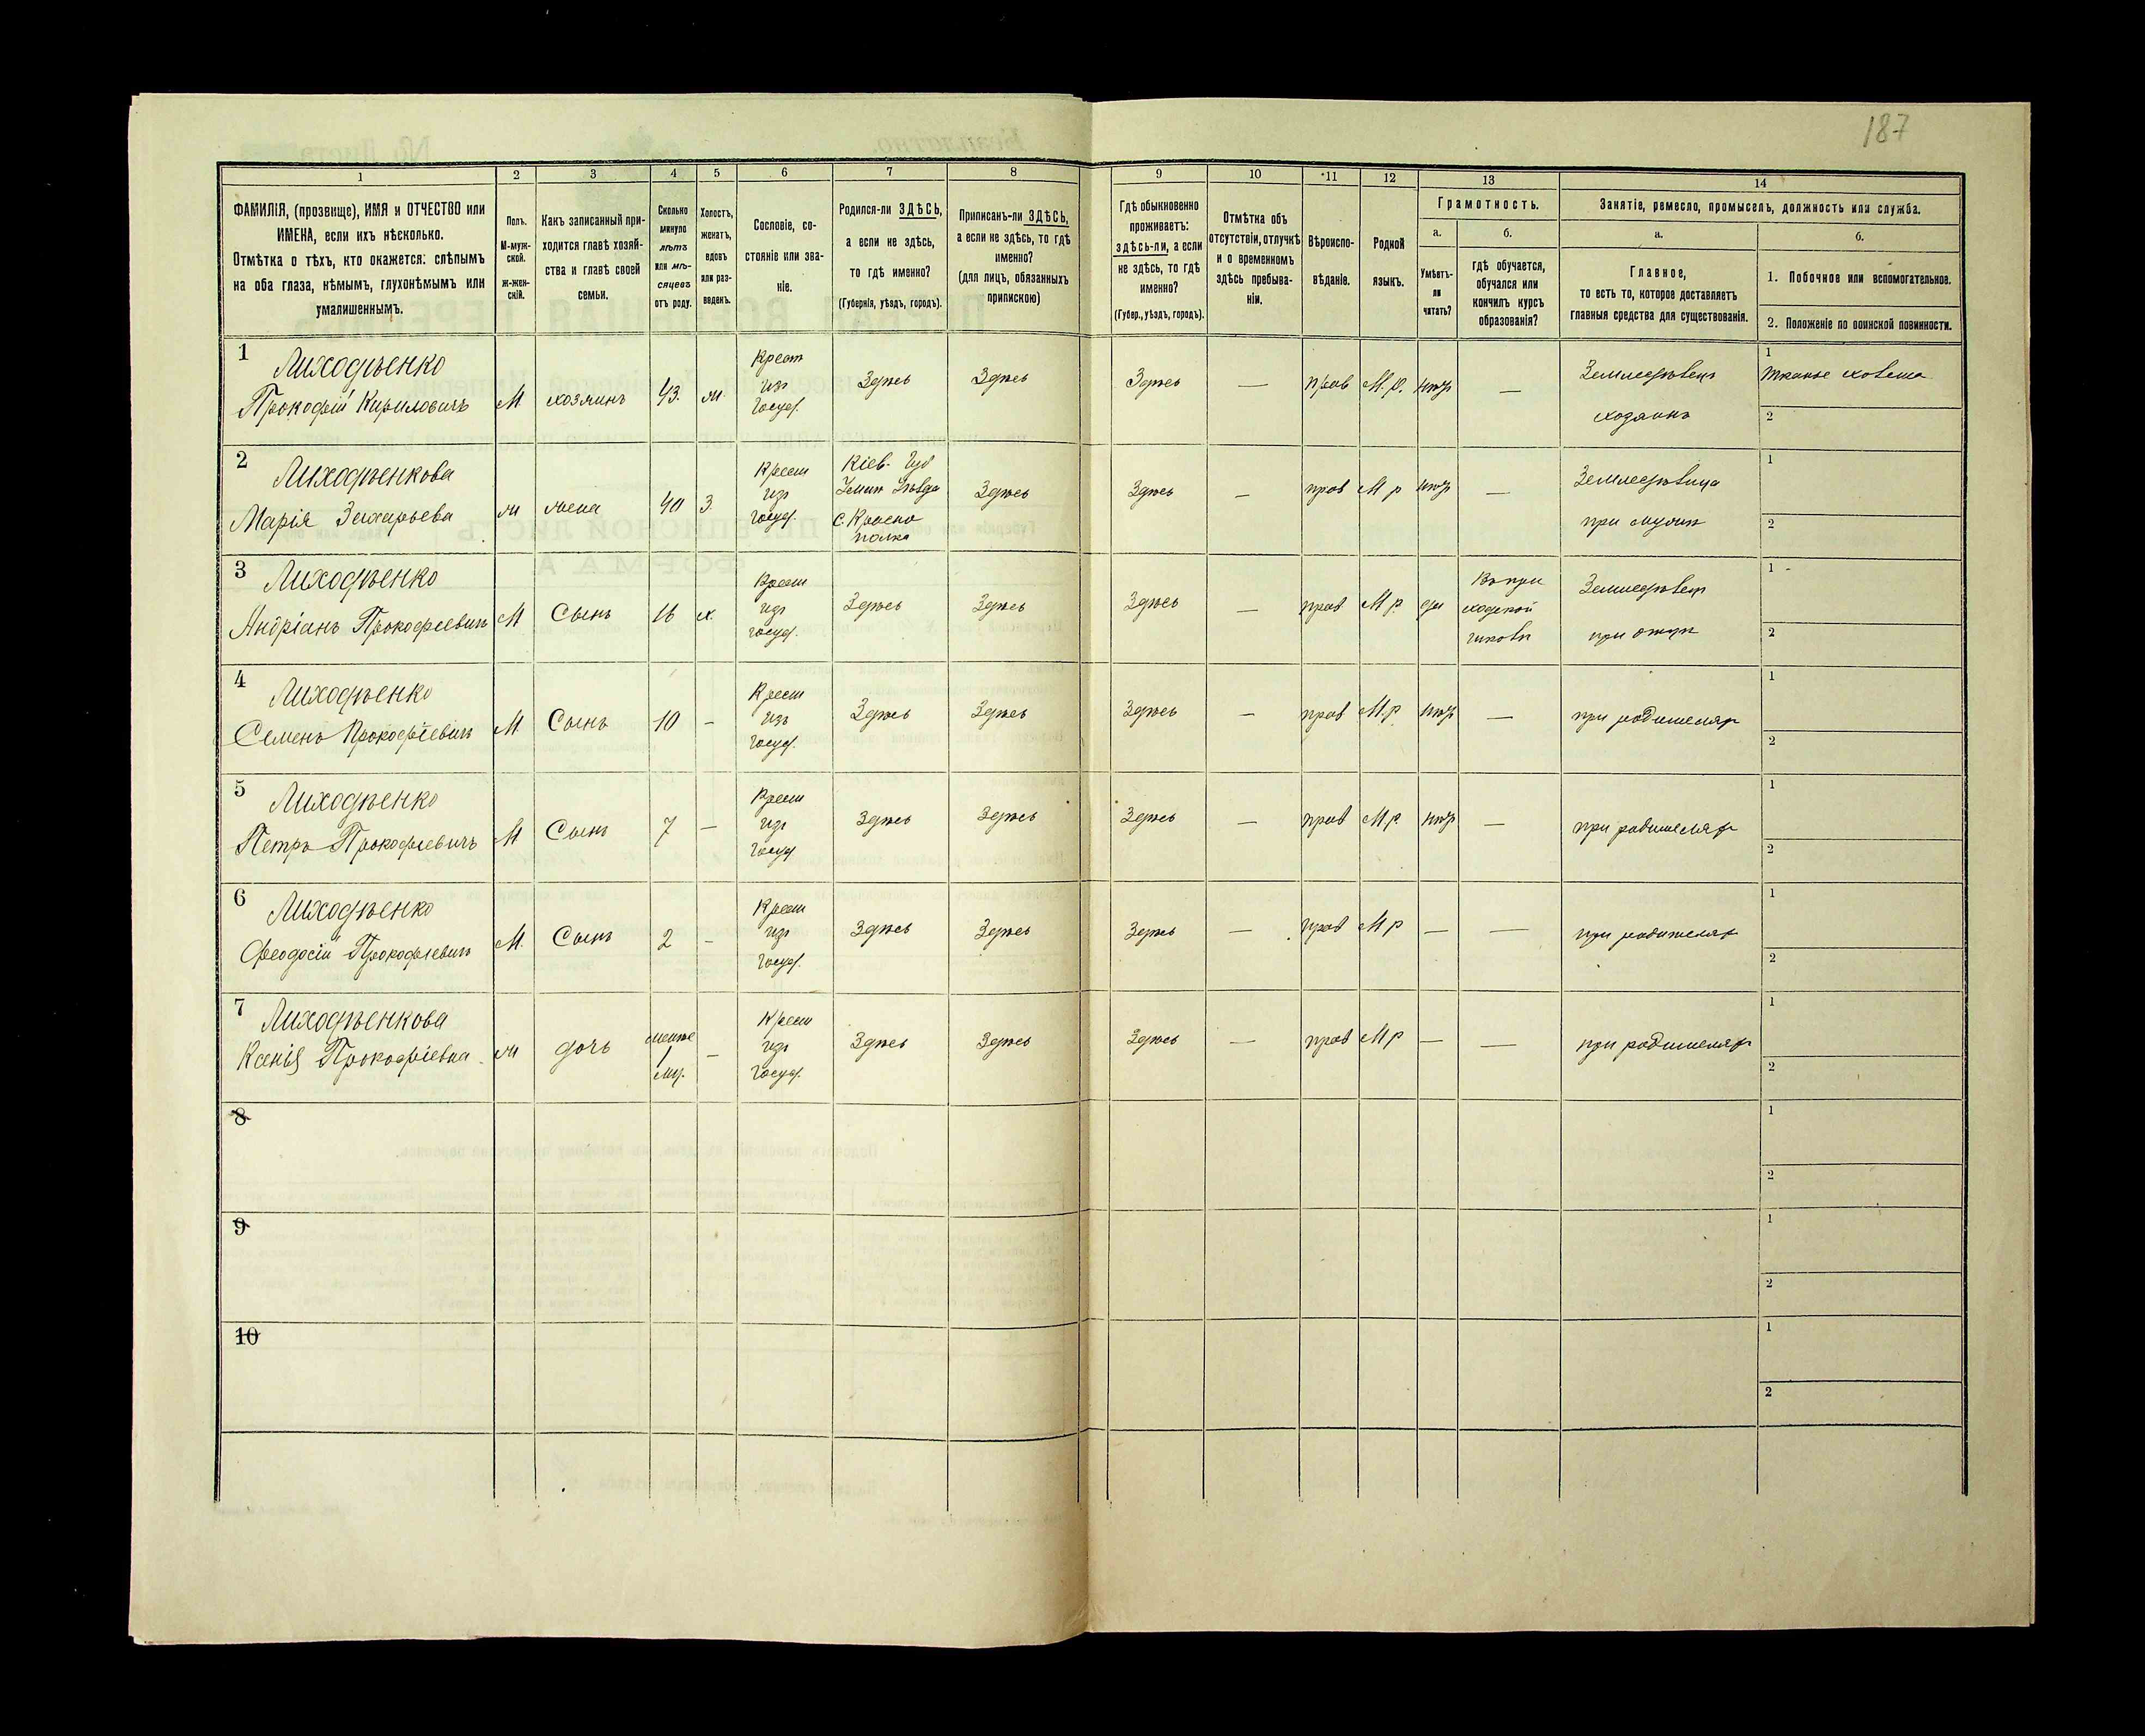 187
1 2 3 4 5 6 7 8 9 10 11 12 13 14
ФАМИЛІЯ, (прозвище), ИМЯ и ОТЧЕСТВО или
ИМЕНА, если ихъ нѣсколько.
Отмѣтка о тѣхъ, кто окажется: слѣпымъ
на оба глаза, нѣмымъ, глухонѣмымъ или
умалишеннымъ.
Полъ.
М-муж-
ской.
ж-жен-
скій.
Какъ записанный при-
ходится главѣ хозяй-
ства и главѣ своей
семьи.
Сколько
минуло
лѣтъ
или мѣ-
сяцевъ
отъ роду.
Холостъ,
женатъ,
вдовъ
или раз-
веденъ.
Сословіе, со-
стояніе или зва-
ніе.
Родился-ли ЗДѢСЬ,
а если не здѣсь,
то гдѣ именно?
(Губернія, уѣздъ, городъ).
Приписанъ-ли ЗДѢСЬ,
а если не здѣсь, то гдѣ
именно?
(для лицъ, обязанныхъ
припискою)
Гдѣ обыкновенно
проживаетъ:
здѣсь-ли, а если
не здѣсь, то гдѣ
именно?
(Губер., уѣздъ, городъ).
Отмѣтка объ
отсутствіи, отлучкѣ
и о временномъ
здѣсь пребыва-
ніи.
Вѣроиспо-
вѣданіе.
Родной
языкъ.
Грамотность.
а.
Умѣетъ-
ли
читать?
б.
гдѣ обучается,
обучался или
кончилъ курсъ
образованія?
Занятіе, ремесло, промыселъ, должность или служба.
а.
Главное,
то есть то, которое доставляетъ
главныя средства для существованія.
б.
1. Побочное или вспомогательное.
2. Положеніе по воинской повинности.
1
Лиходѣенко
Прокофій Кириловичъ
М. хозяинъ 43. ж.
Крест
изъ
госуд.
Здѣсь Здѣсь Здѣсь — прав М. р. нѣтъ —
Земледѣлецъ
хозяинъ
1
Тканье холста
2
2
Лиходѣенкова
Марія Захарьева
ж жена 40 З.
Крест
изъ
госуд.
Кіев. Губ
Уѣзда
с. Красно
полка
Здѣсь Здѣсь — прав М р нѣтъ —
Земледѣлица
при мужѣ
1
2
3
Лиходѣенко
Андріанъ Прокофіевичъ
М Сынъ 16 х.
Крест
изъ
госуд.
Здѣсь Здѣсь Здѣсь — прав М р. да
Въ при
ходской
школѣ
Земледѣлецъ
при отцѣ
1
2
4
Лиходѣенко
Семенъ Прокофіевичъ
М. Сынъ 10 —
Крест
изъ
госуд.
Здѣсь Здѣсь Здѣсь — прав М.р. нѣтъ —
при родителяхъ
1
2
5
Лиходѣенко
Петръ Прокофіевичъ
М Сынъ 7 —
Крест
изъ
госуд
Здѣсь Здѣсь Здѣсь — прав М.р. нѣтъ —
при родителяхъ
1
2
6
Лиходѣенко
Феодосій Прокофіевичъ
М. Сынъ 2 —
Крест
изъ
госуд.
Здѣсь Здѣсь Здѣсь — прав М р — —
при родителяхъ
1
2
7
Лиходѣенкова
Ксенія Прокофіевна
ж дочь
менѣе
1
—
Крест
изъ
госуд.
Здѣсь Здѣсь Здѣсь — прав М р — —
при родителяхъ
1
2
8
1
2
9
1
2
10
1
2